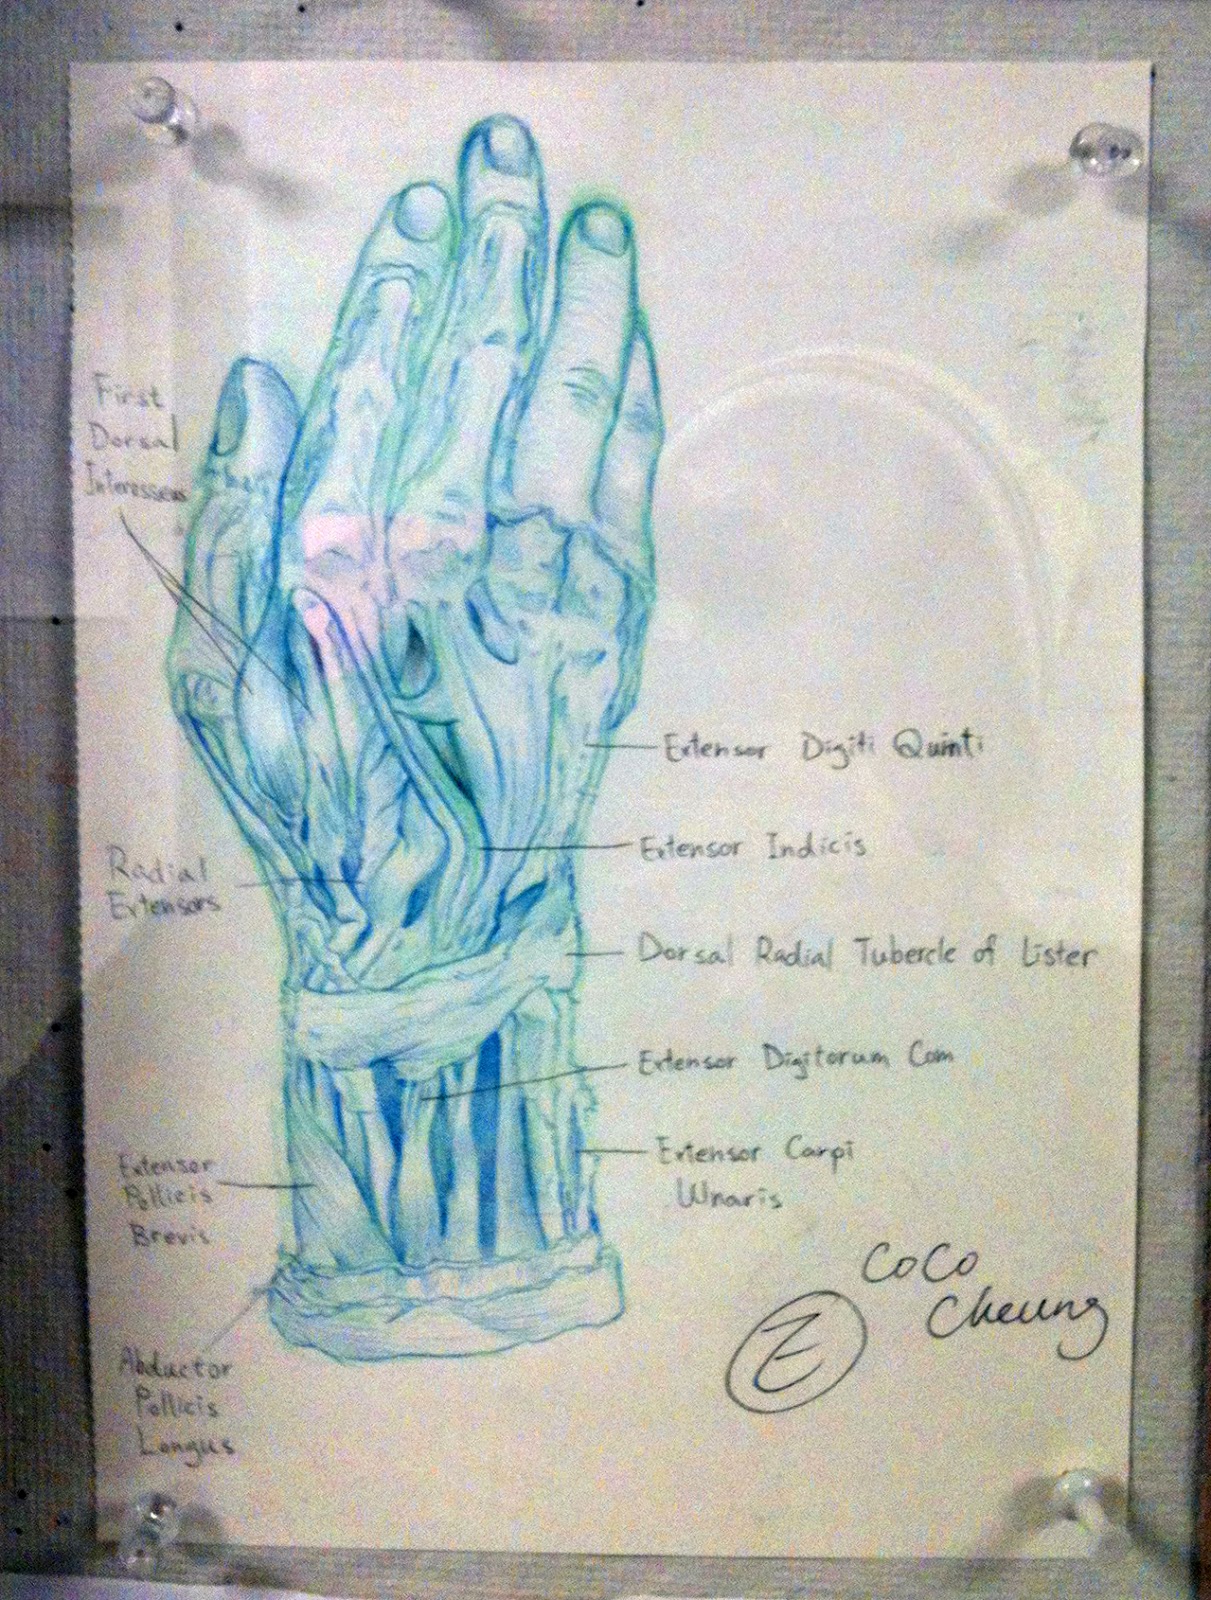 First
Dorsal
Interosseus
Radial
Extensors
Extensor
Pollicis
Brevis
Abductor
Pollicis
Longus
Extensor Digiti Quinti
Extensor Indicis
Dorsal Radial Tubercle of Lister
Extensor Digitorum Com
Extensor Carpi
Ulnaris
CoCo
Cheung
E